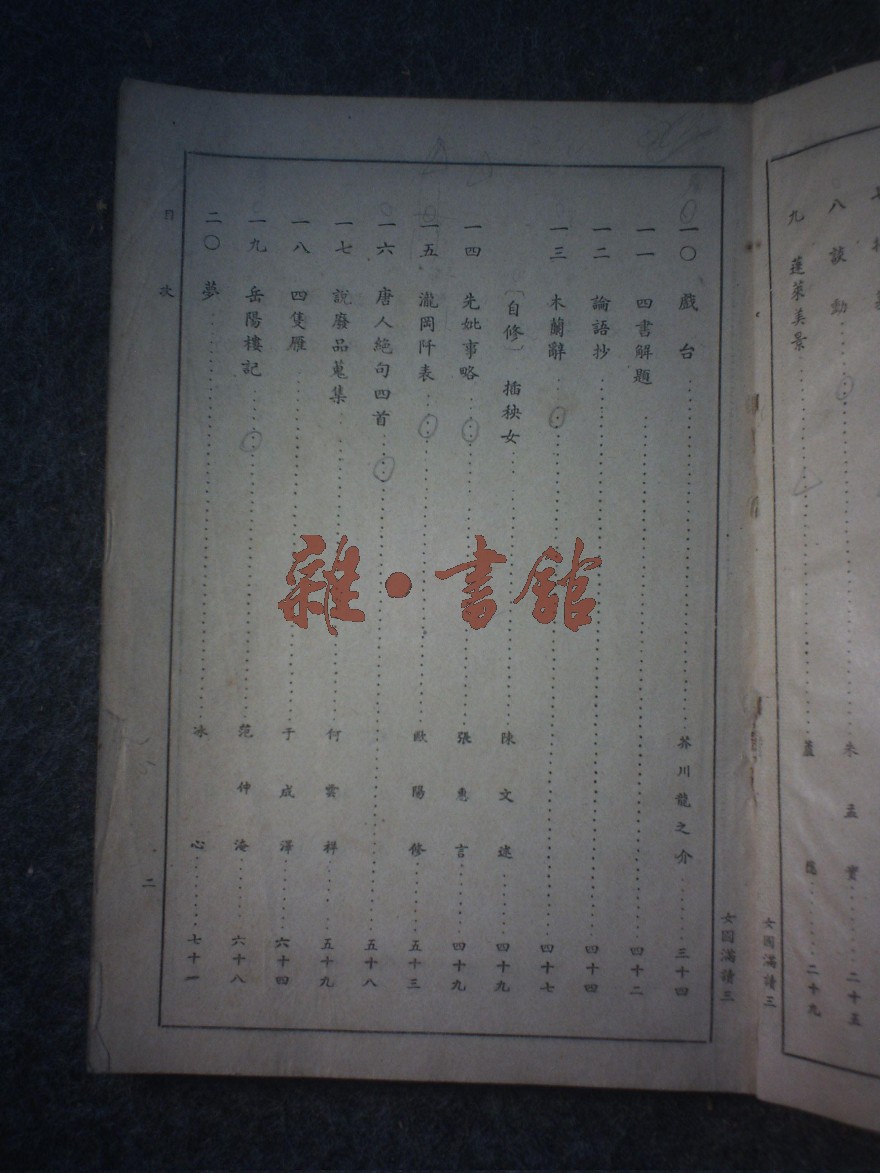 八 談動 朱孟實 二十五
九 蓬萊美景 盧隱 二十九
女國滿讀三
女國滿讀三
一〇 戲台 芥川龍之介 三十四
一一 四書解題 四十二
一二 論語抄 四十四
一三 木蘭辭 四十七
〔自修〕 插秧女 陳文述 四十九
一四 先妣事略 張惠言 四十九
一五 瀧岡阡表 歐陽修 五十三
一六 唐人絕句四首 五十八
一七 說廢品蒐集 何雲祥 五十九
一八 四隻雁 于成澤 六十四
一九 岳陽樓記 范仲淹 六十八
二〇 夢 冰心 七十一
目次
二
雜·書館